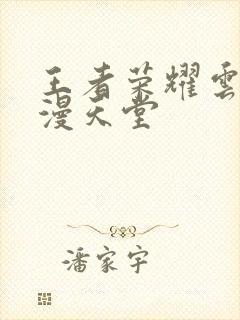 王者荣耀雲
漫天堂
潘家宇